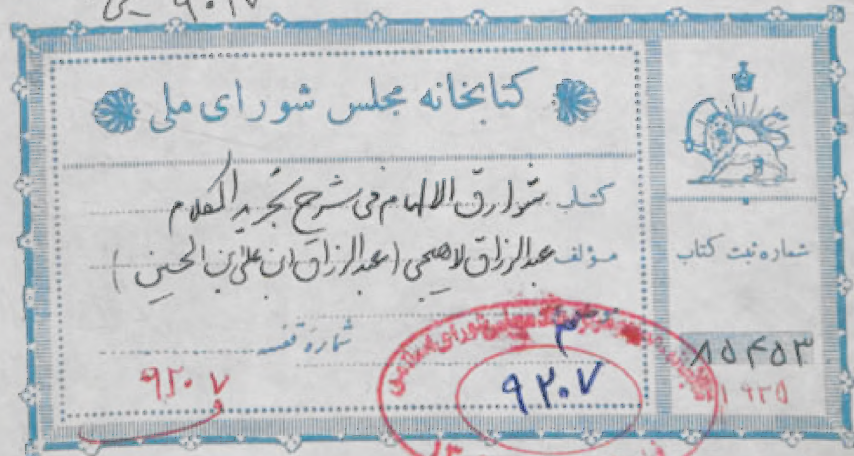 کتابخانه مجلس شورای ملی
کتاب شوارق الالهام فی شرح تجرید الکلام
مؤلف عبدالرزاق لاهیجی (عبدالرزاق ابن علی بن الحسین)
شماره قفسه
۹۲۰۷
۹۲۰۷
شماره ثبت کتاب
۸۵۴۵۳